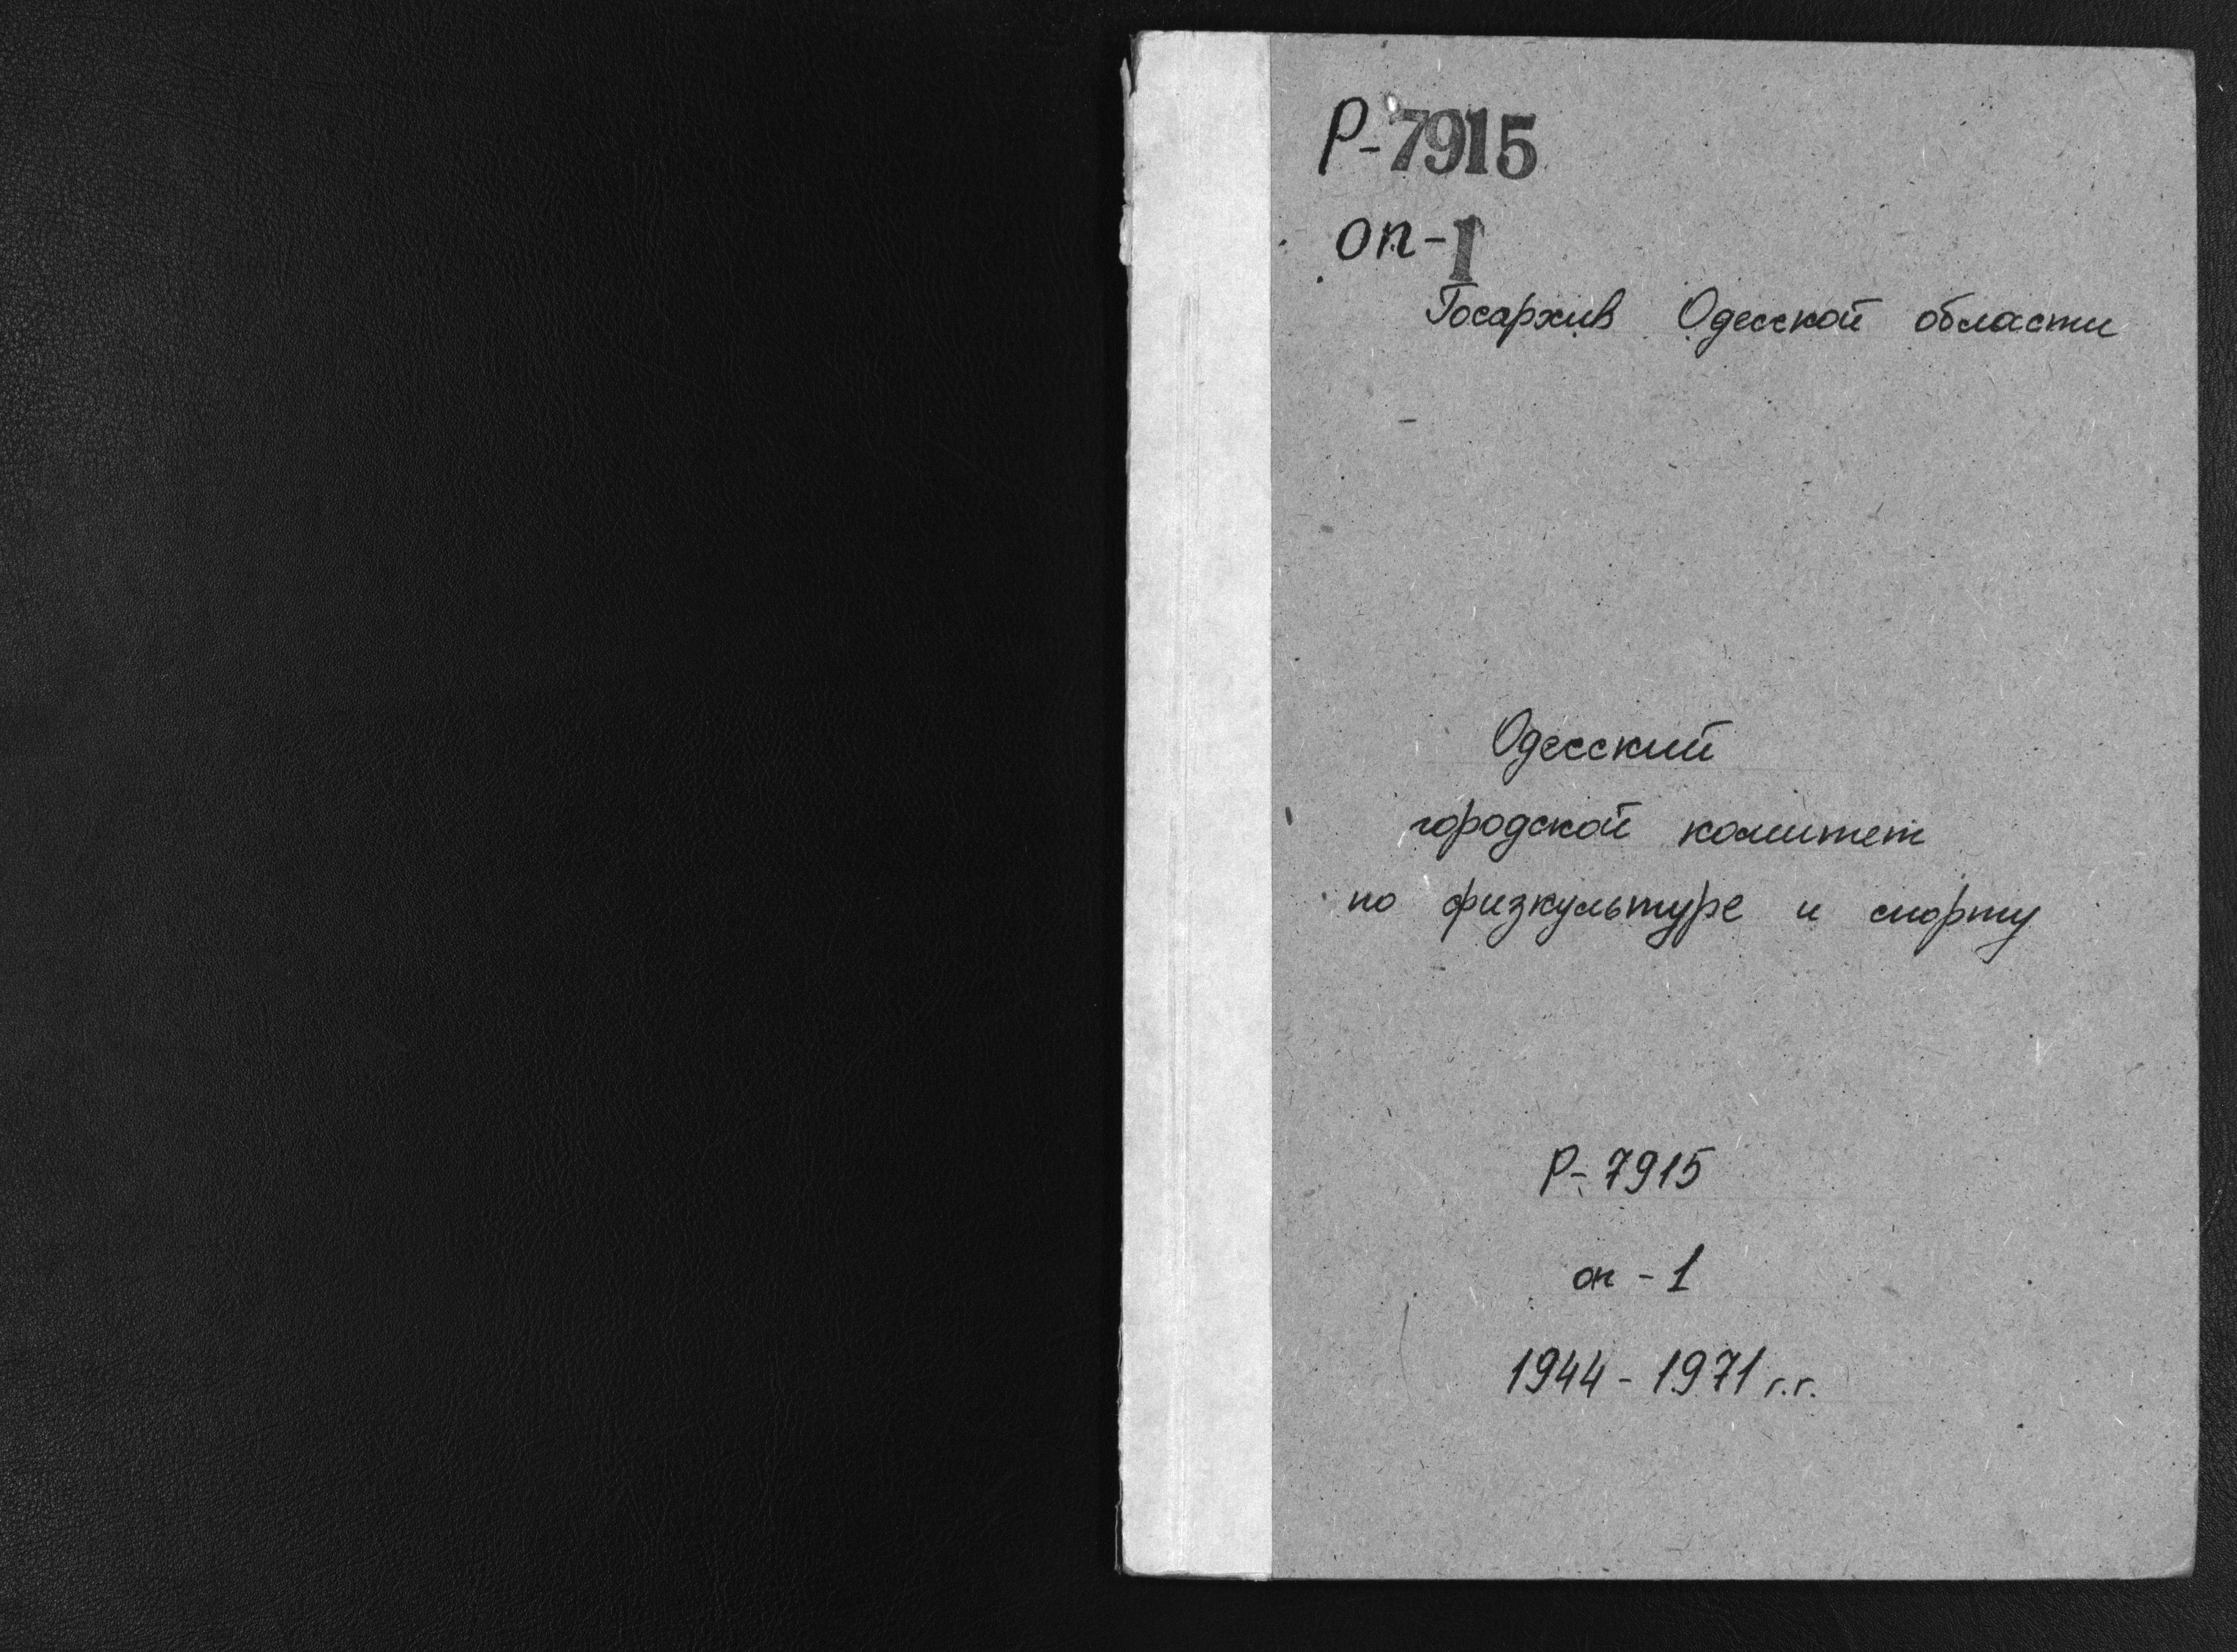 Р-7915
оп-1
Госархив Одесской области
Одесский
городской комитет
по физкультуре и спорту
Р-7915
оп-1
1944-1971 г.г.